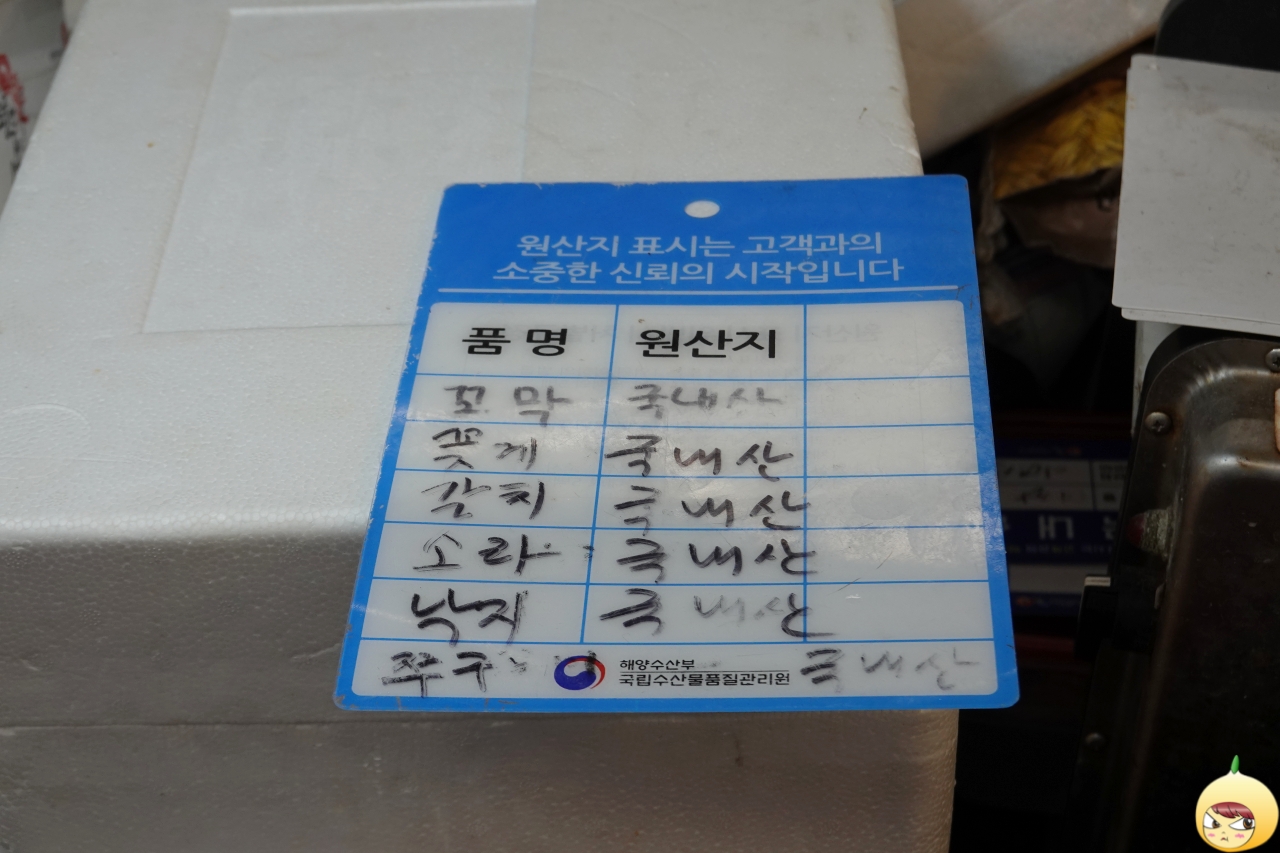 원산지 표시는 고객과의
소중한 신뢰의 시작입니다
품명 원산지
꼬막 국내산
꽃게 국내산
갈치 국내산
소라 국내산
낙지 국내산
쭈구미 국내산
해양수산부
국립수산물품질관리원